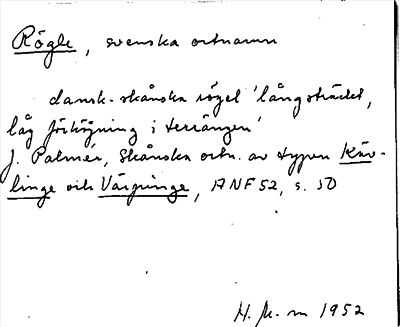 Rögle, svenska ortnamn
dansk-skånska rögel 'långsträckt,
låg förhöjning i terrängen'
J. Palmér, Skånska ortn. av typen Käv-
linge och Värpinge, ANF 52, s. 50
H. M-m 1952